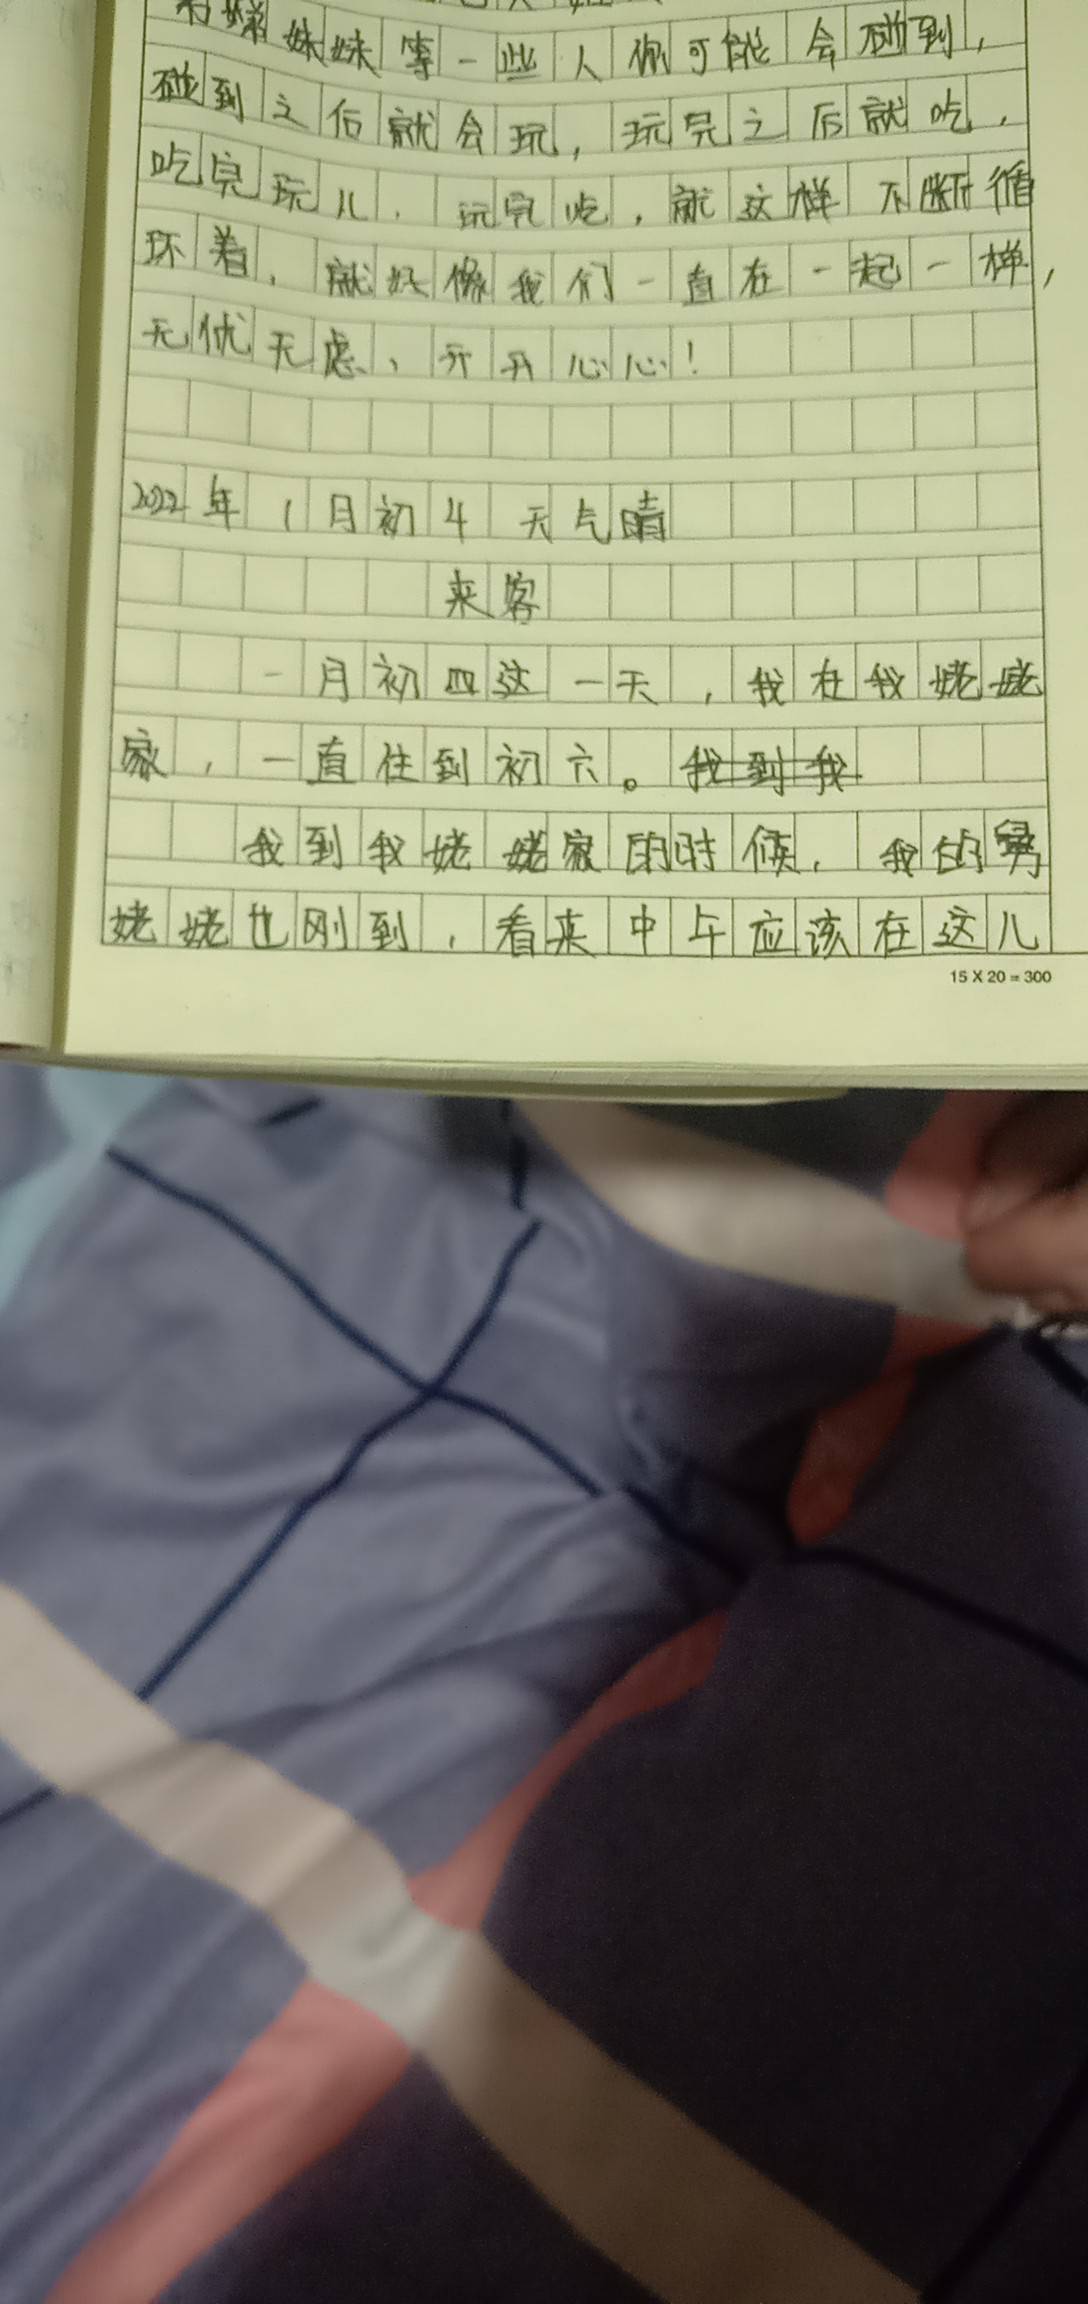 妹妹等一些人你可能会碰到，
碰到之后就会玩，玩完之后就吃，
吃完玩儿，玩完吃，就这样不断循
环着，就好像我们一直在一起一样，
无忧无虑、开开心心！
2022年1月初4 天气晴
来客
一月初四这一天，我在我姥姥
家，一直住到初六。我到我
我到我姥姥家的时候，我的舅
姥姥也刚到，看来中午应该在这儿
15 X 20 = 300